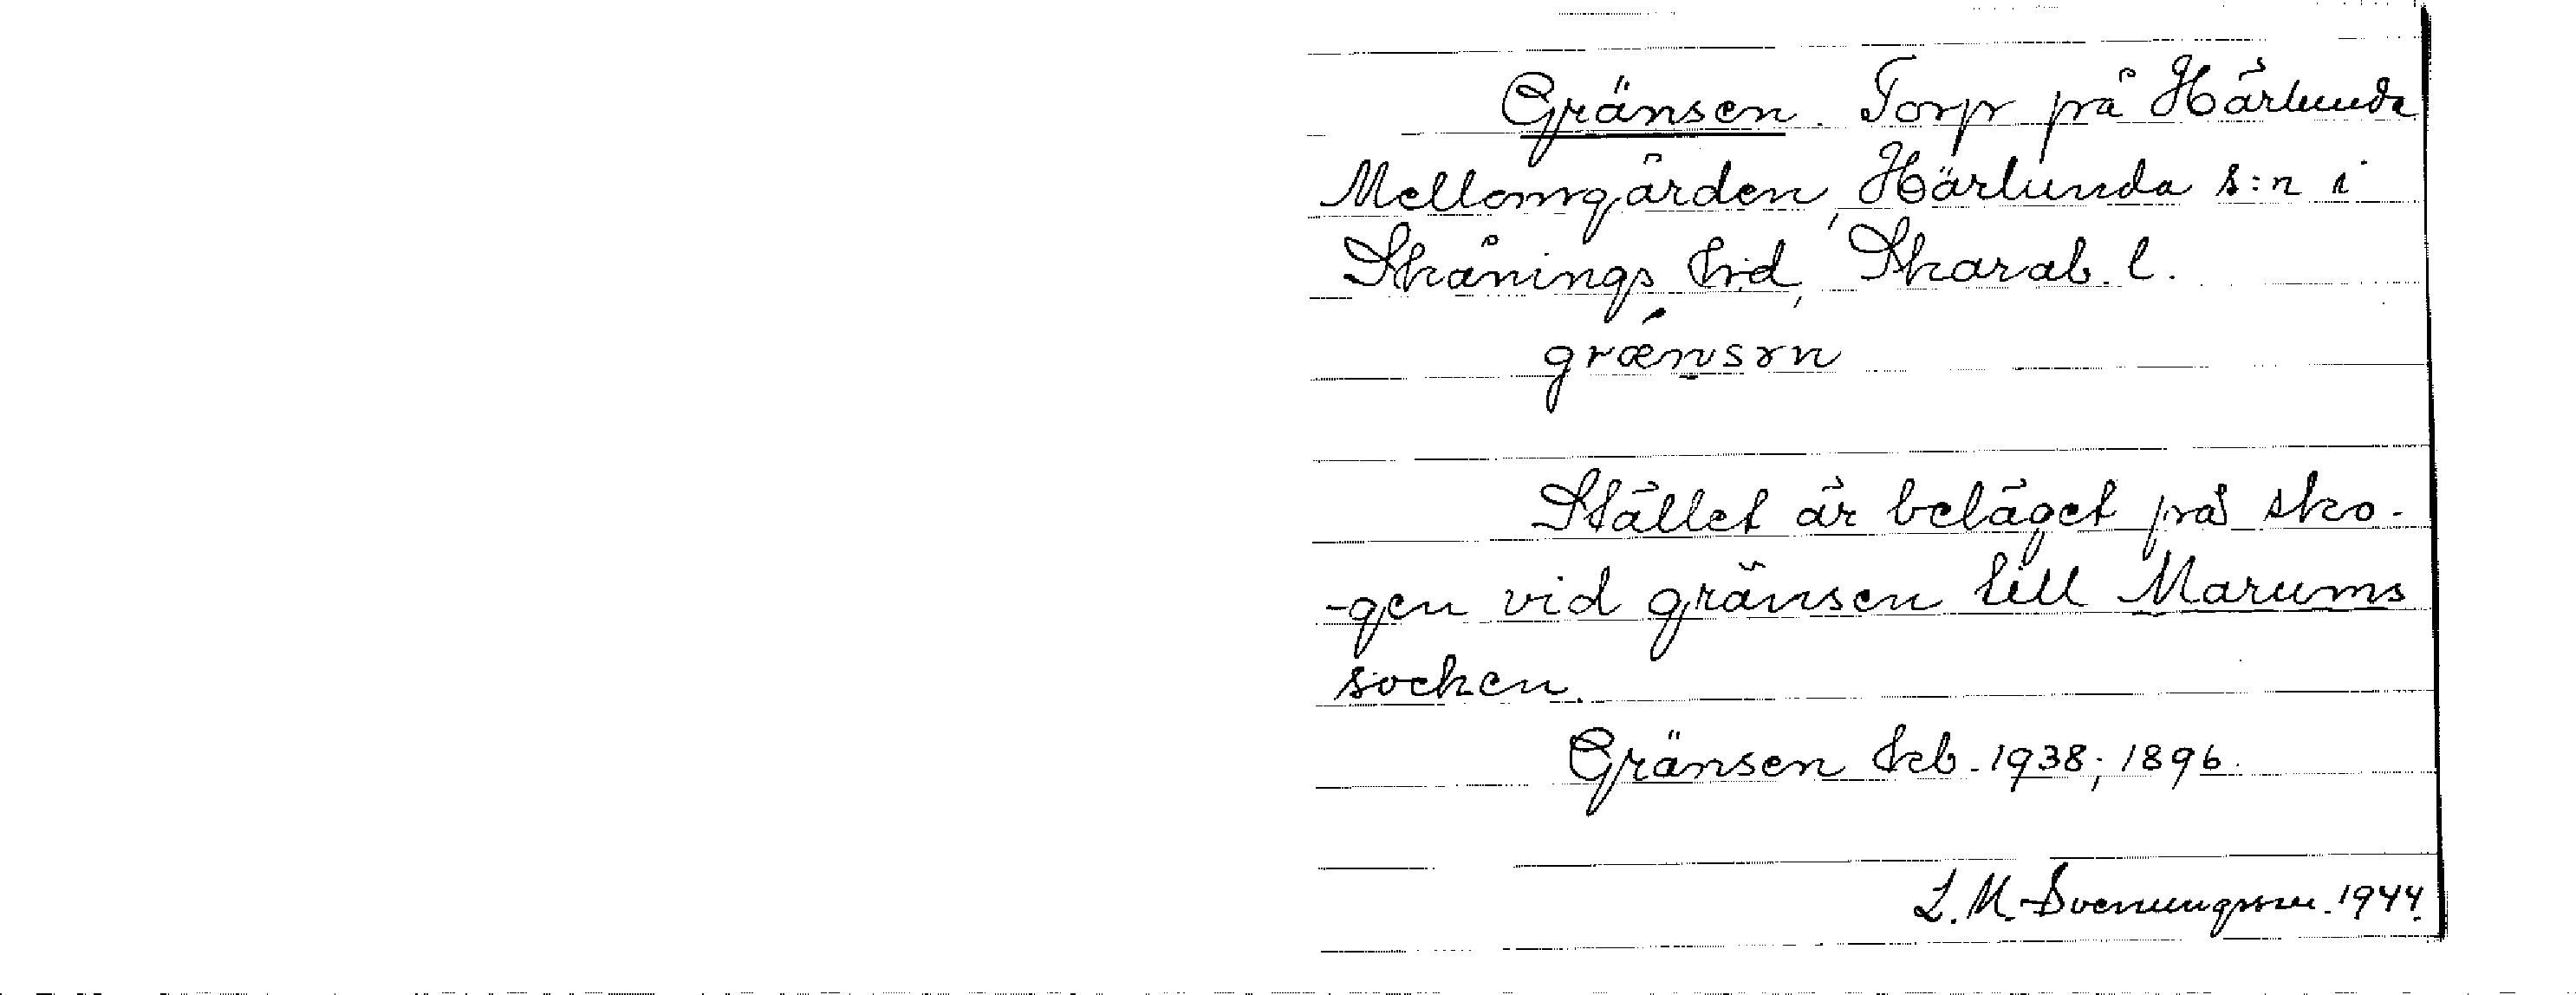 Gränsen. Torp på Härlunda
Mellomgården, Härlunda s:n i
Skånings hd, Skarab. l.
grænsən
Stället är beläget på sko-
-gen vid gränsen till Marums
socken.
Gränsen kb. 1938; 1896.
L. M. Svenungsson. 1944.